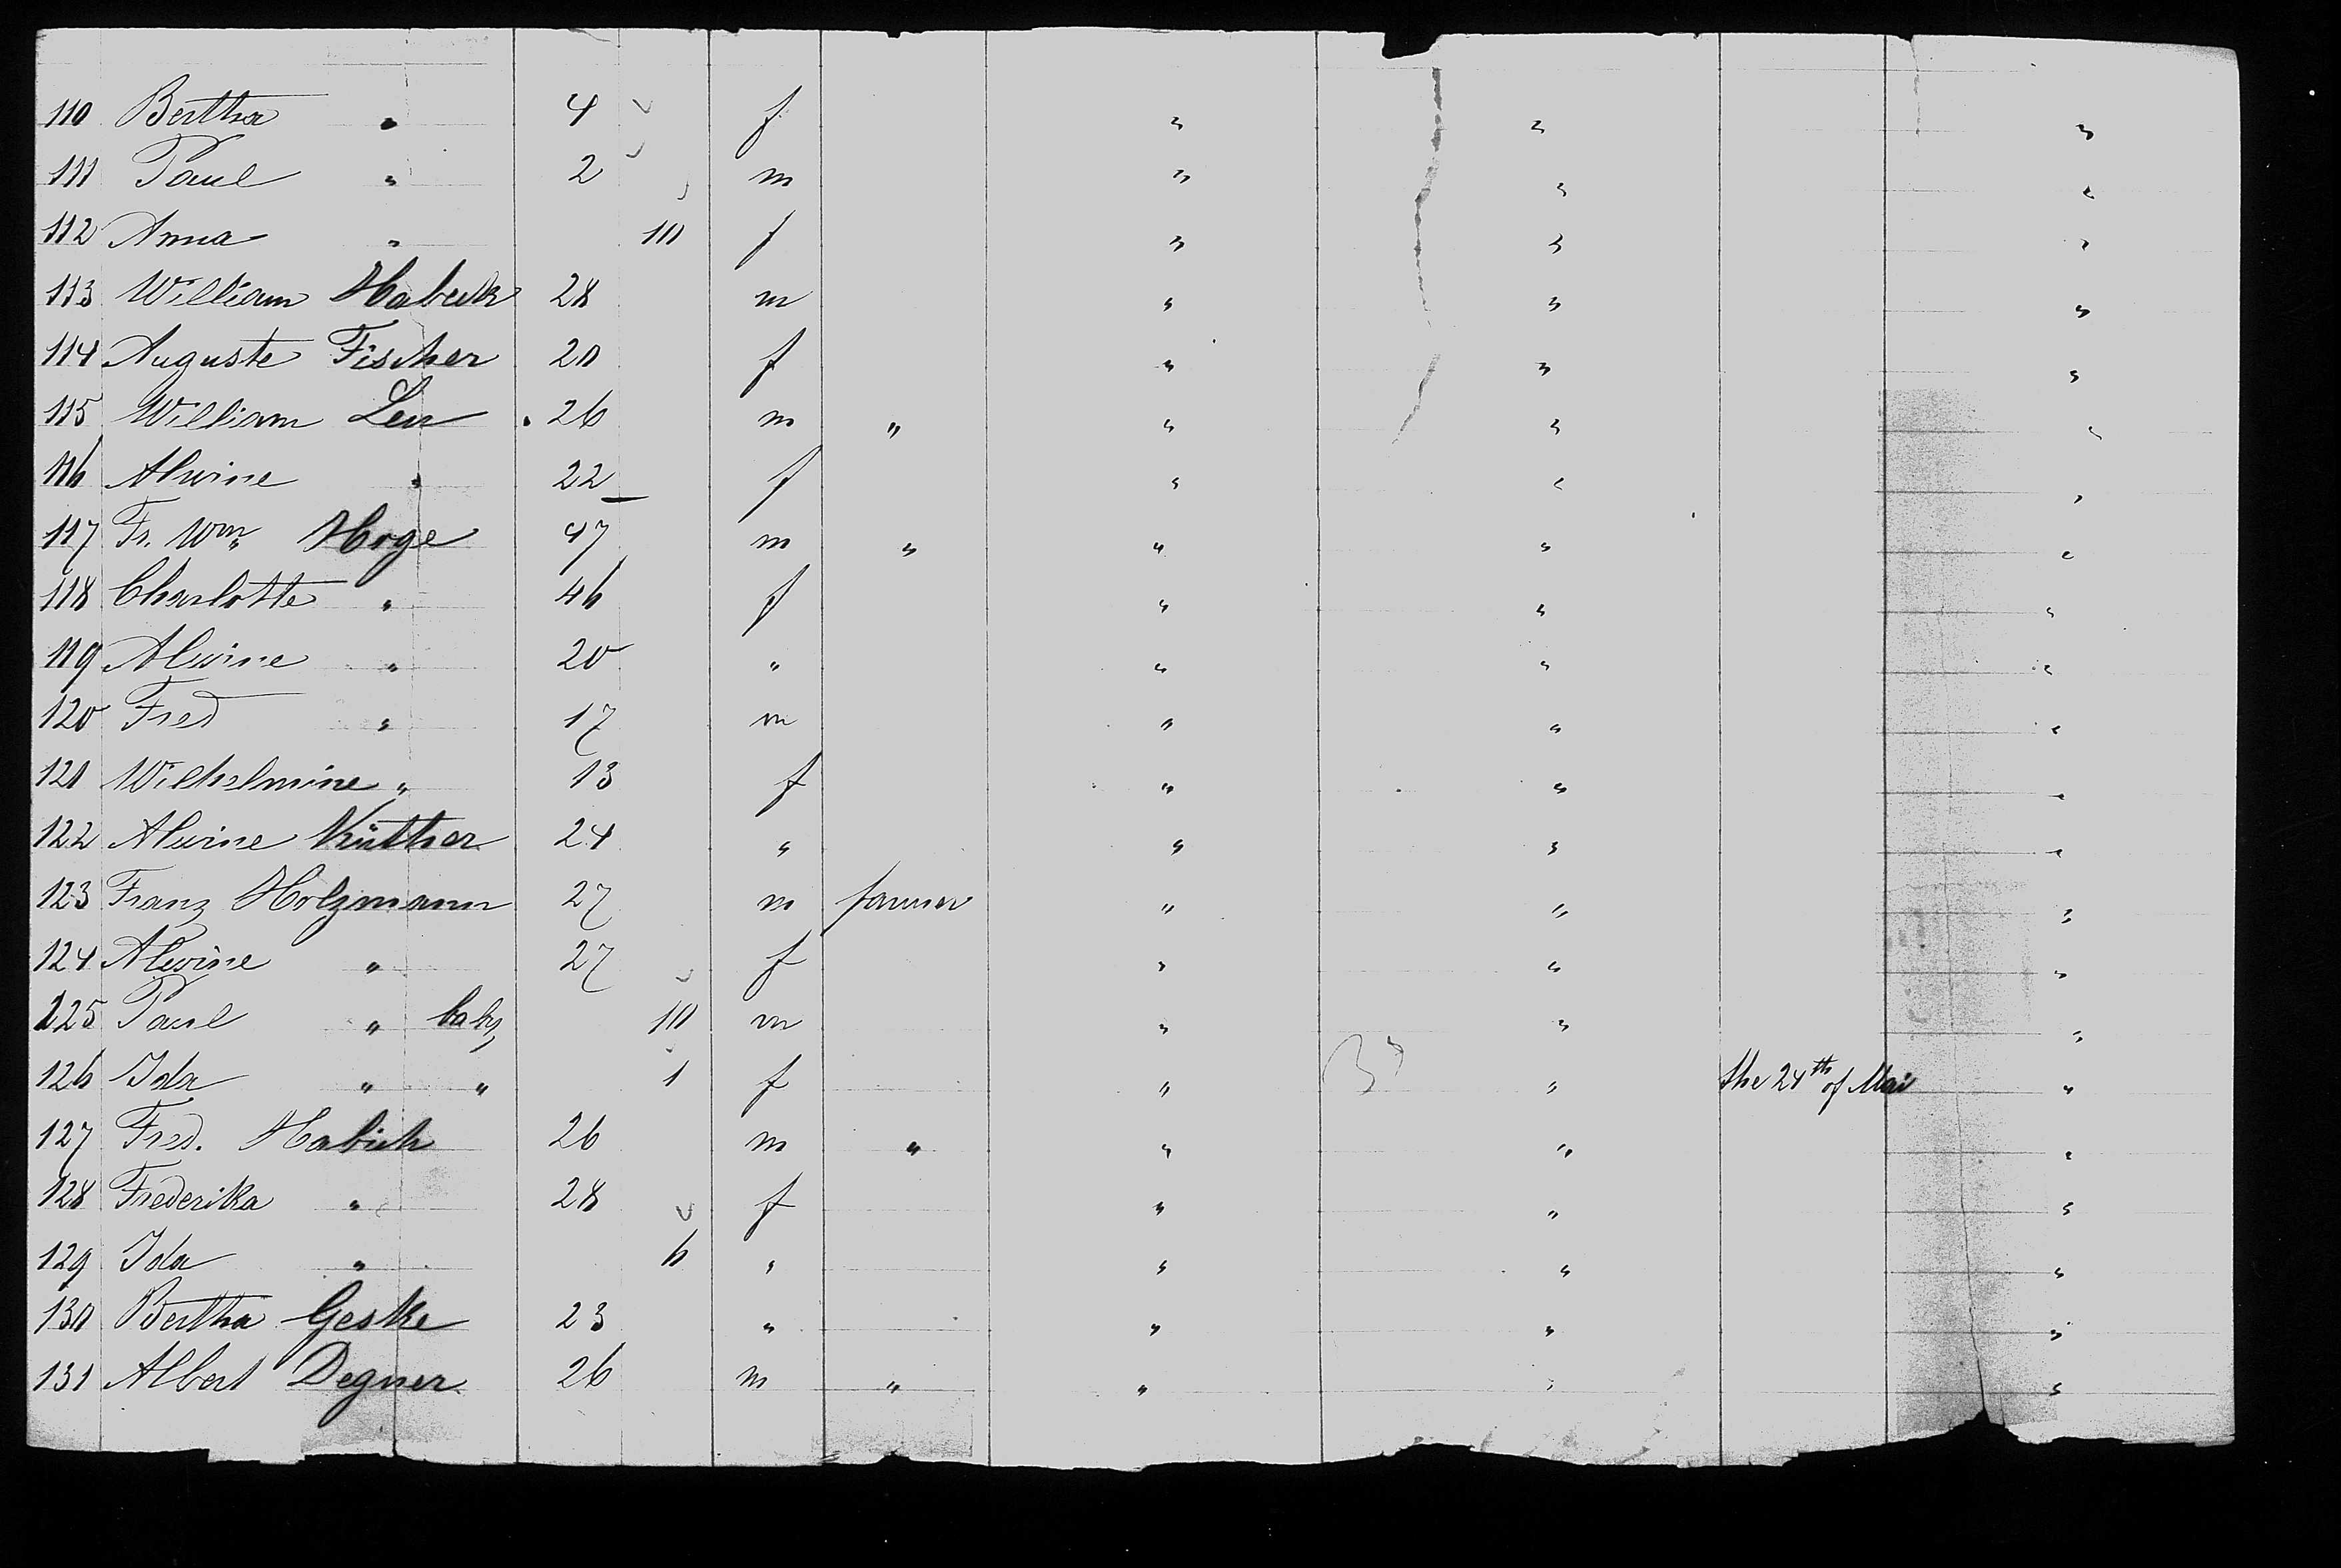 110 Bertha " 4 f " " "
111 Paul " 2 m " " "
112 Anna " 10 f " " "
113 William Habeck 28 m " " "
114 Auguste Fischer 20 f " " "
115 William Leu 26 m " " " "
116 Alwine " 22 f " " "
117 Fr. Wm Hoge 47 m " " " "
118 Charlotte " 46 f " " "
119 Alwine " 20 " " " "
120 Fred " 17 m " " "
121 Wilhelmine " 13 f " " "
122 Alwine Küther 24 " " " "
123 Franz Holzmann 27 m farmer " " "
124 Alwine " 27 f " " "
125 Paul " baby 10 m " " "
126 Ida " " 1 f " " the 24th of Mai "
127 Fred. Habich 26 m " " " "
128 Frederika " 28 f " " "
129 Ida " 6 " " " "
130 Bertha Geske 23 " " " "
131 Albert Degner 26 m " " " "